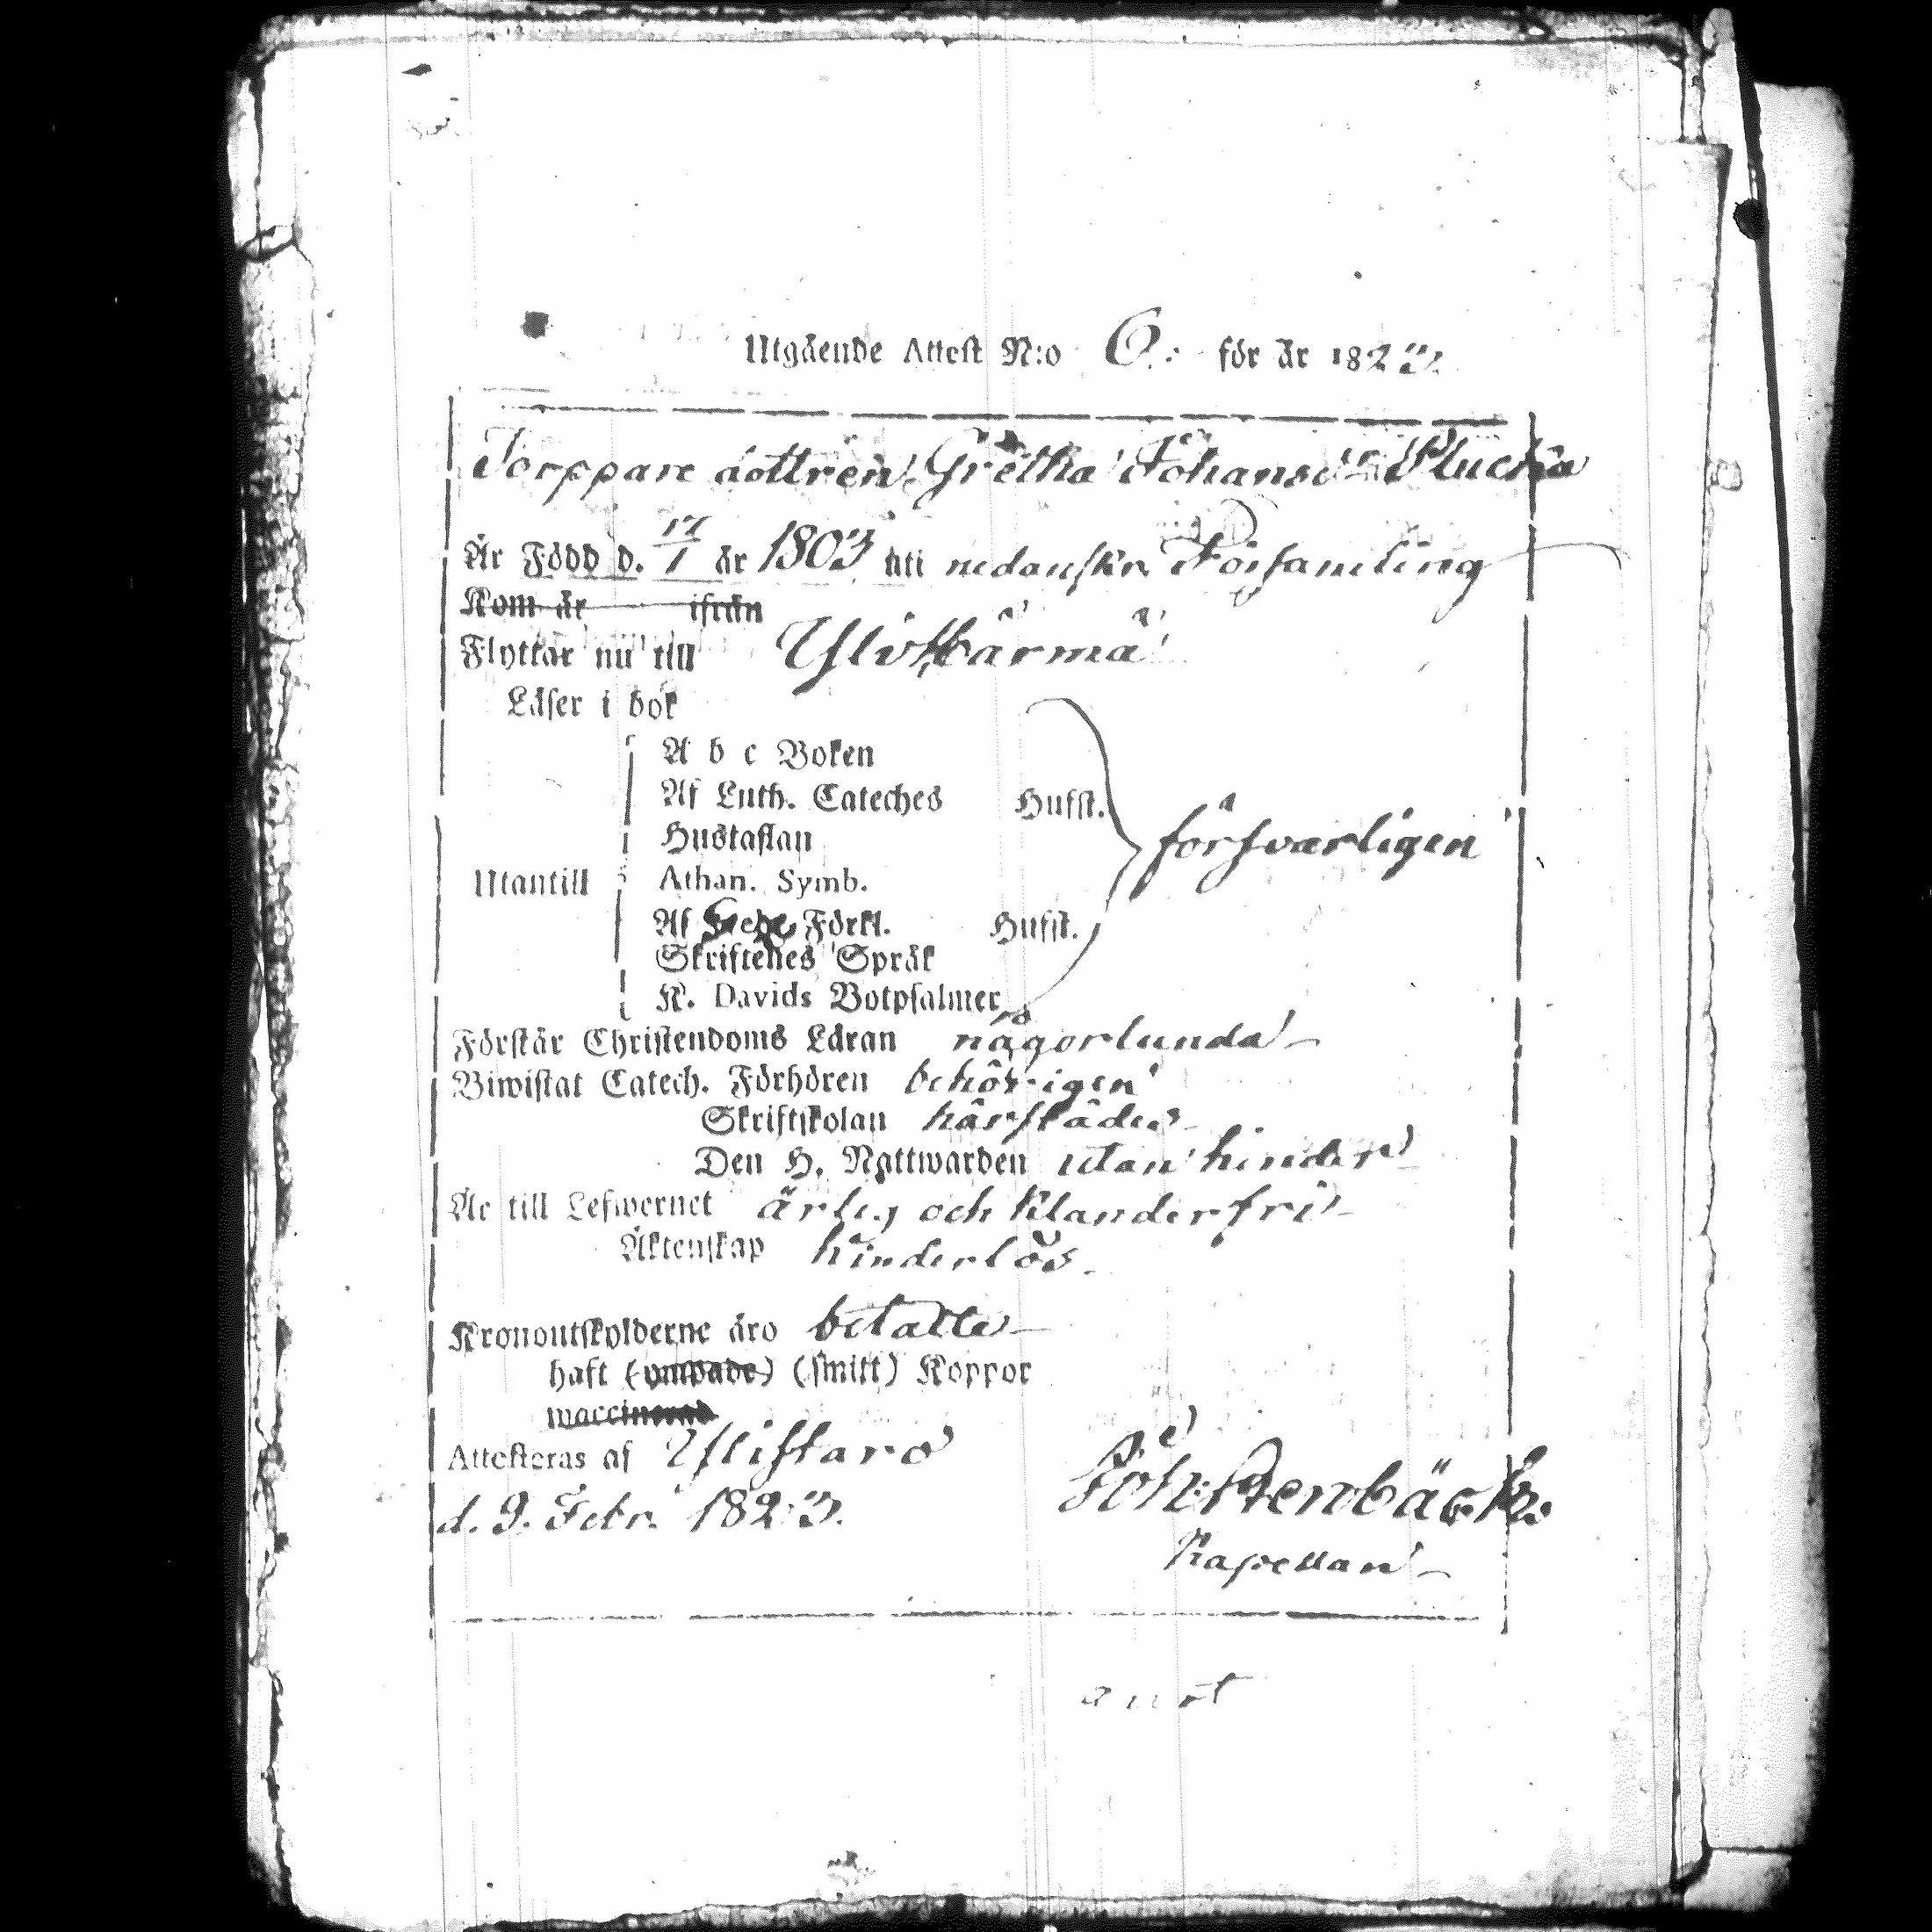 Utgående Attest N:o 6. för år 1823.
Torppare dottren Gretha Johansdr Plucka
Är Född d. 17/1 år 1803 uti nedanskr. Församling
Kom år ifrån
Flyttar nu till Ylikärmä
Läser i bok
A b c Boken
Af Luth. Cateches Hufst.
Hustaflan försvarligen
Utantill Athan. Symb.
Af Förkl. Hufst.
Skriftenes Språk
K. Davids Botpsalmer
Förstår Christendoms Läran någorlunda
Biwistat Catech. Förhören behörigen
Skriftskolan härstädes
Den H. Nattwarden utan hinder
Är till Lefwernet ärlig och klanderfri
Äktenskap hinderlös
Kronoutskylderne äro betalte
haft (ympade) (smitt) Koppor
waccinerad
Attesteras af Ylistaro
d. 9. Febr. 1823.
Joh: Stenbäck.
Kapellan